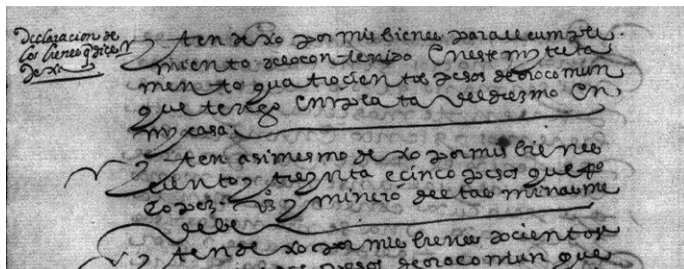 declaracion de
los bienes q dice
dexa
yten dexo por mis bienes para el cumpli
miento de lo contenido en este my testa
mento quatrocientos pesos de oro comun
que tengo en plata del diezmo en
my casa
yten asimesmo dexo por mis bienes
ciento y treynta e cinco pesos que po
lopez minero destas minas me
debe
yten dexo por mis bienes docientos
pesos de oro comun que